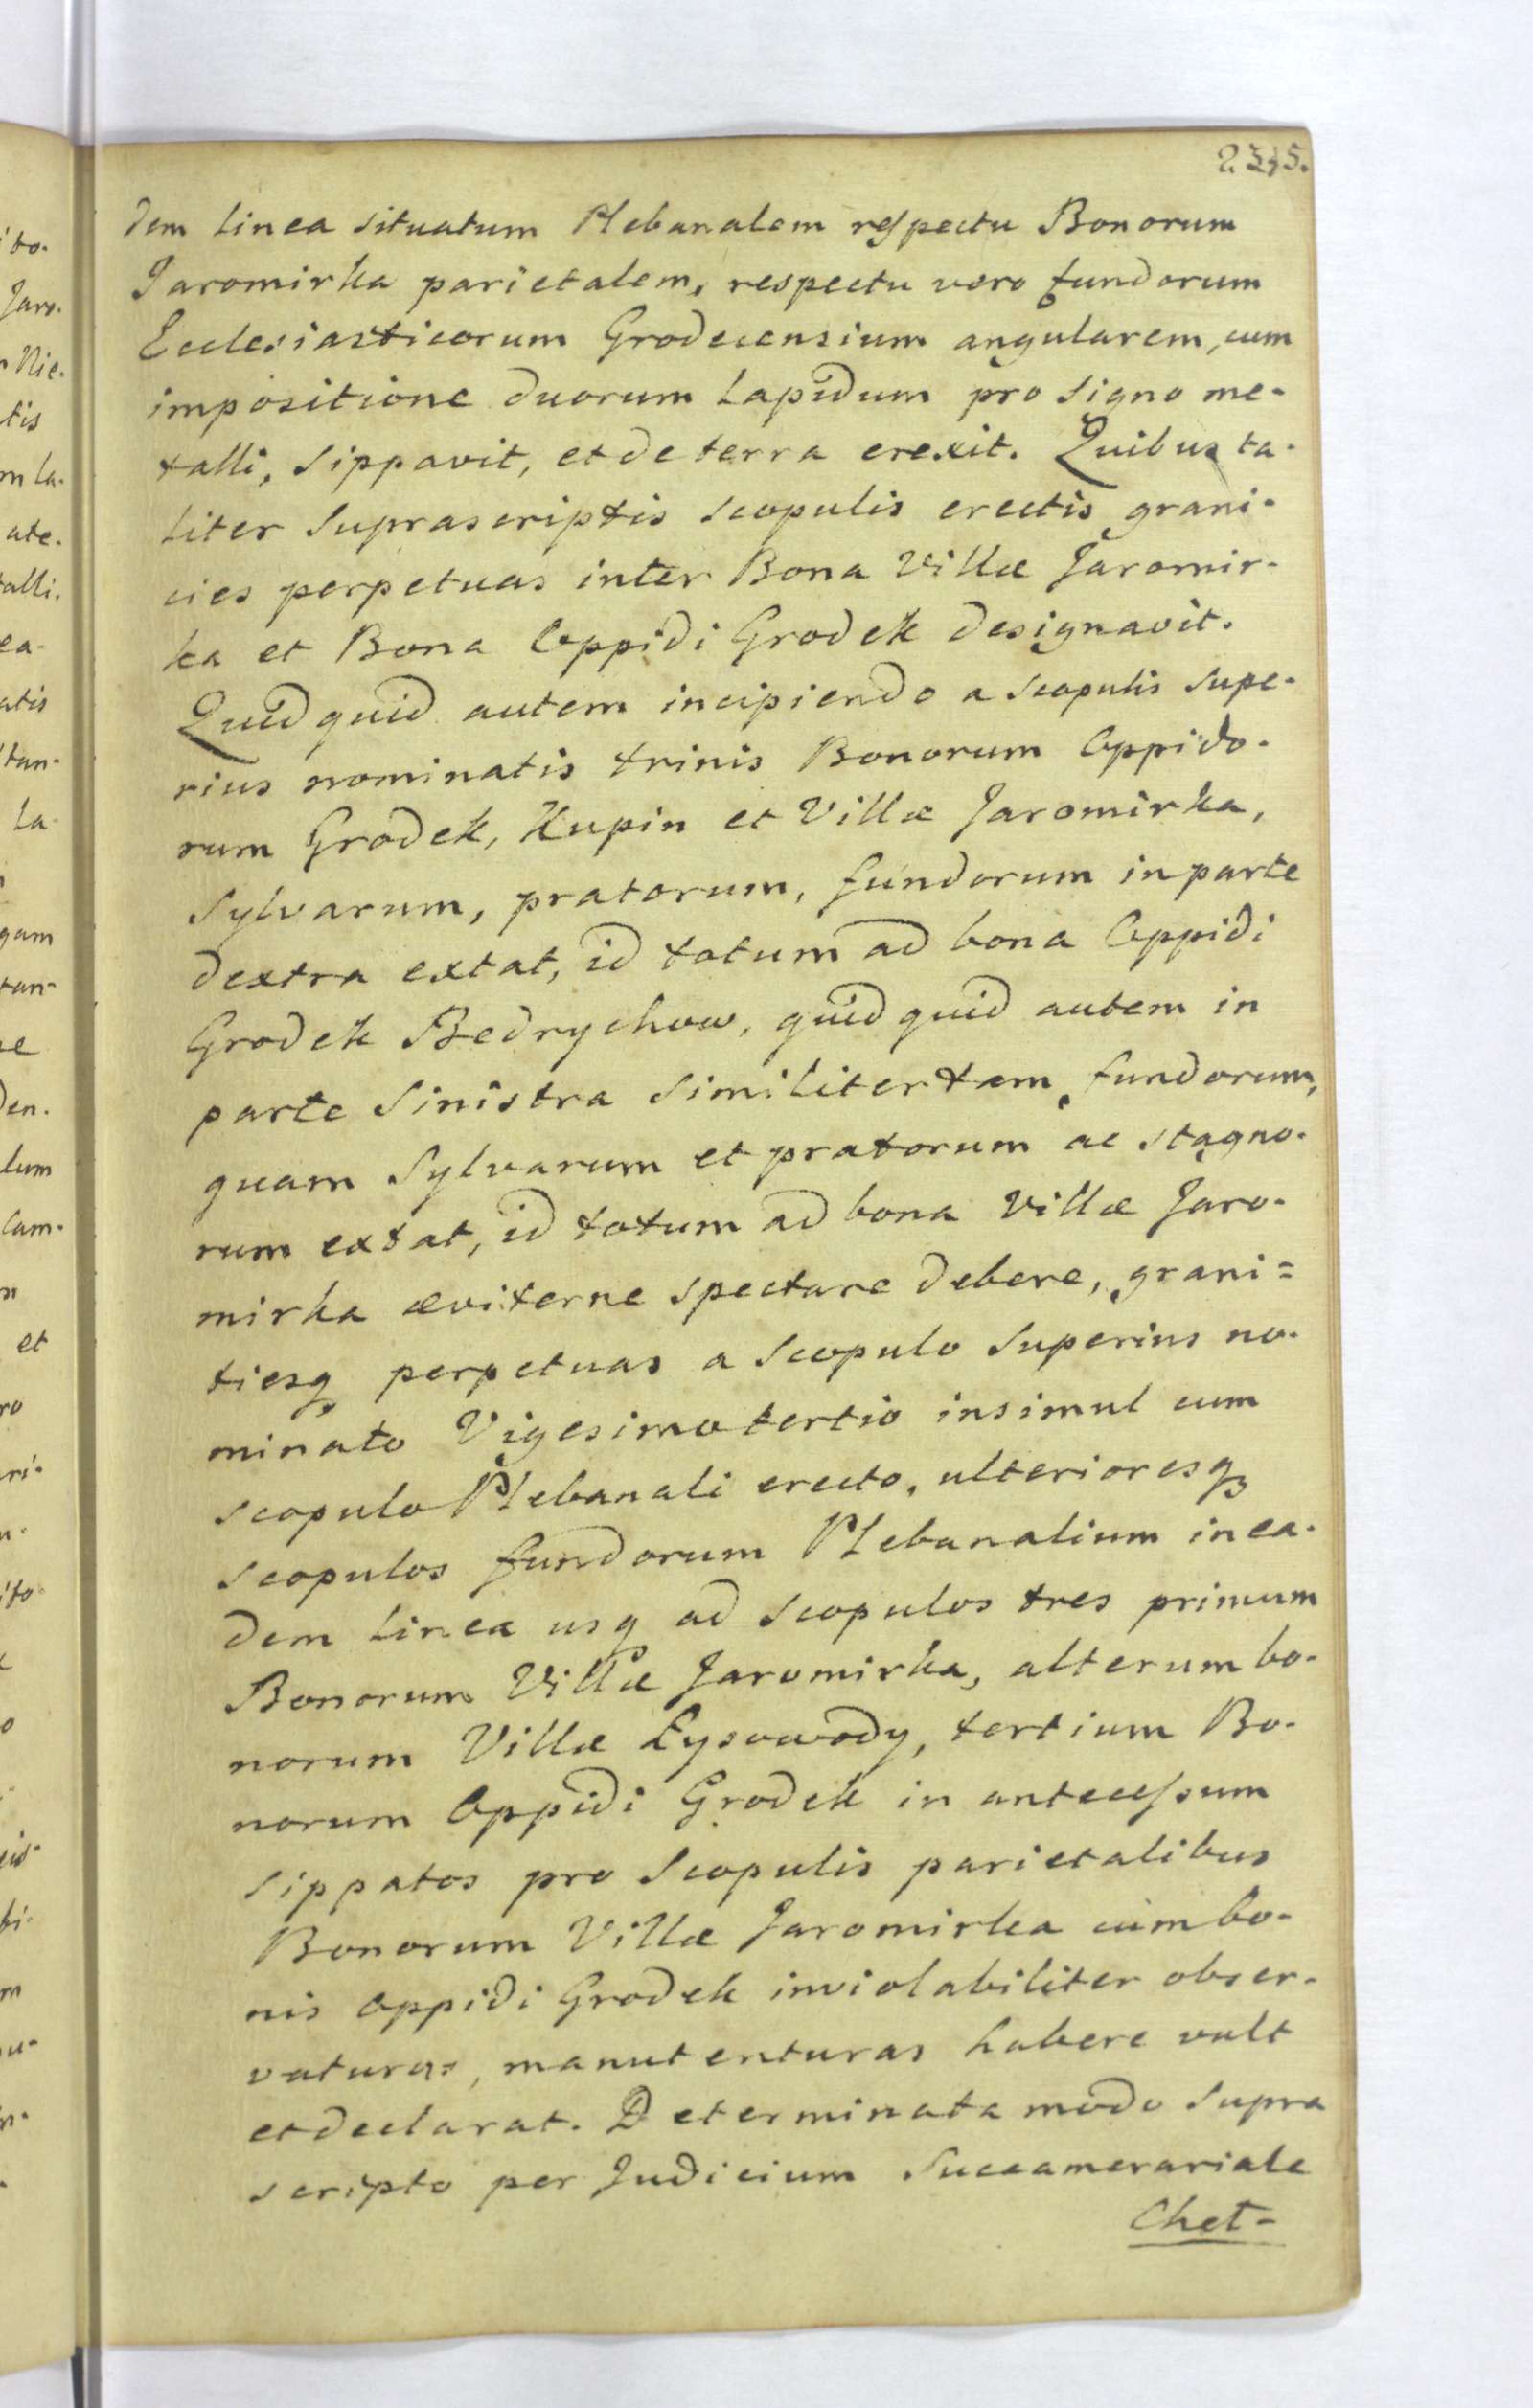 dem linea situatum Plebanalem respectu Bonorum
Jaromirka parietalem, respectu vero fundorum
Ecclesiasticorum Grodecensium angularem, cum
impositione duorum Lapidum pro signo me-
talli, sippavit, et de terra erexit. Quibus ta-
liter supra scriptis scopulis erectis grani-
cies perpetuas inter Bona Villæ Jaromir-
ka et Bona Oppidi Grodek designavit.
Quidquid autem incipiendo a scopulis supe-
rius nominatis trinis Bonorum Oppido-
rum Grodek, Kupin et Villæ Jaromirka,
Sylvarum, pratorum, fundorum in parte
dextra extat, id totum ad bona Oppidi
Grodek Bedrychow, quidquid autem in
parte sinistra similiter tam fundorum,
quam Sylvarum et pratorum ac stagno-
rum extat, id totum ad bona Villæ Jaro-
mirka æviterne spectare debere, grani=
tiesq perpetuas a scopulo superius no-
minato Vigesimo tertio insimul cum
scopulo Plebanali erecto, ulterioresq
scopulos fundorum Plebanalium in ea-
dem linea usq ad scopulos tres primum
Bonorum Villæ Jaromirka, alterum bo-
norum Villæ Łysowody, tertium Bo-
norum Oppidi Grodek in antecessum
sippatos pro scopulis parietalibus
Bonorum Villæ Jaromirka cum bo-
nis Oppidi Grodek inviolabiliter obser-
vaturas, manutenturas habere vult
et declarat. Determinata modo supra
scripto per Judicium Succamerariale
Chet-